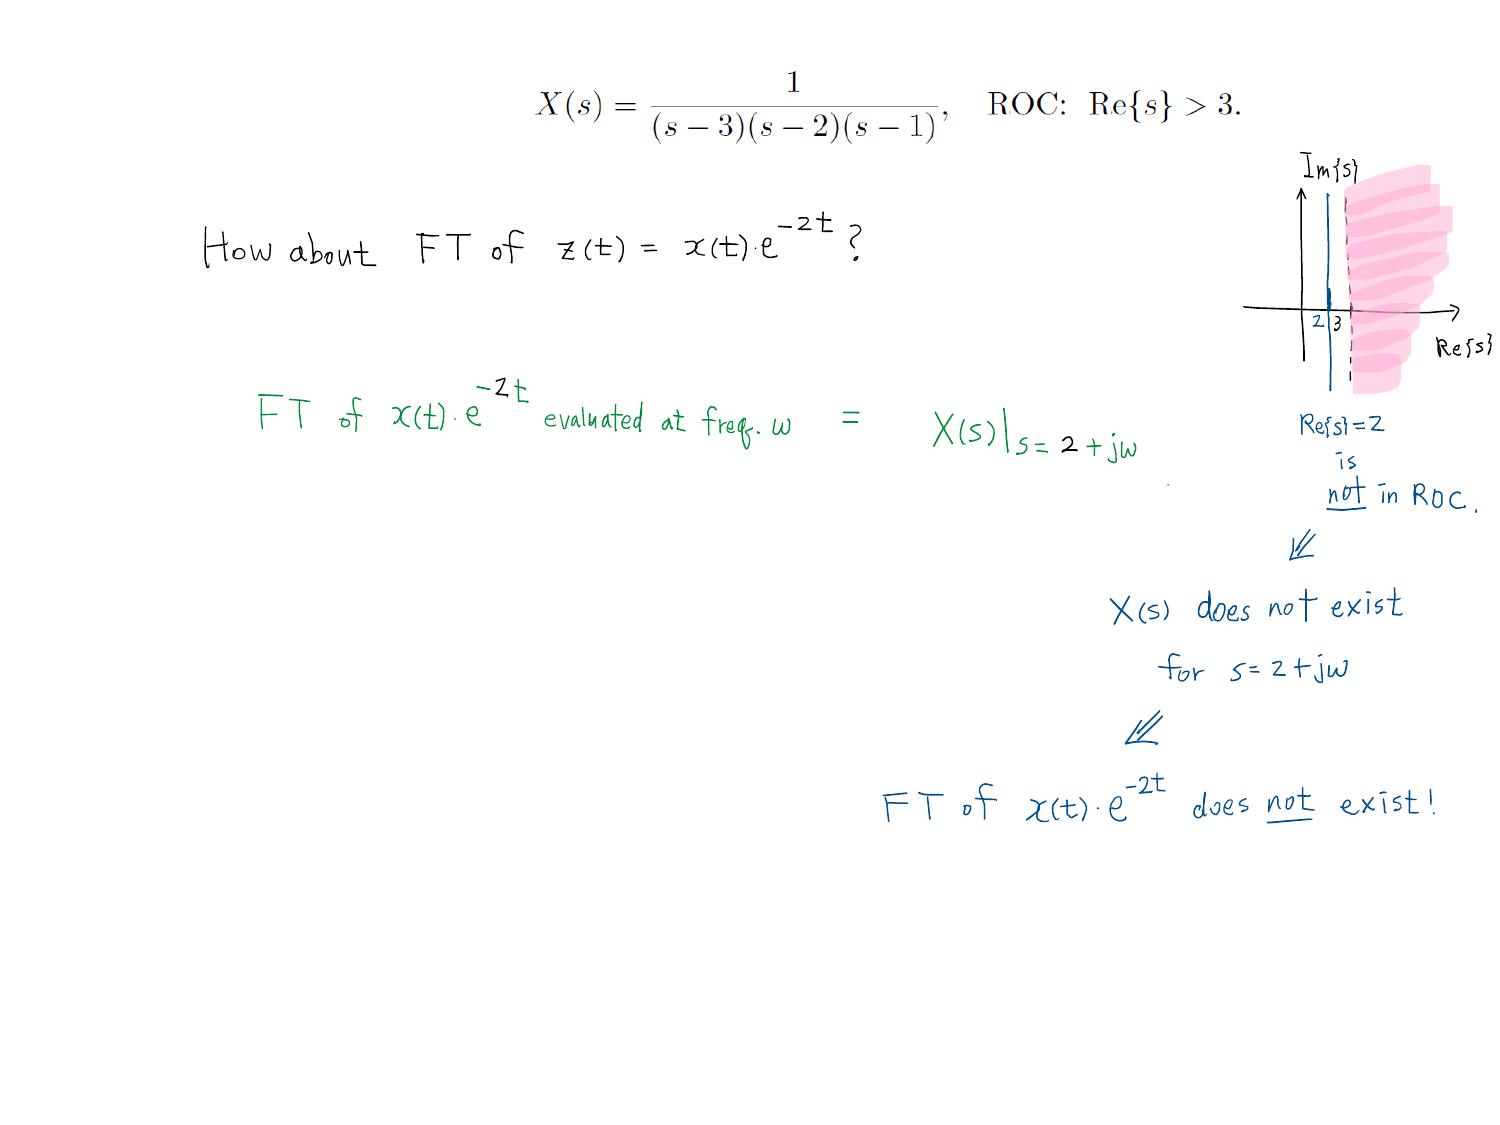 X(s) = 1 / (s − 3)(s − 2)(s − 1), ROC: Re{s} > 3.
Im{s}
How about FT of z(t) = x(t)·e^{-2t} ?
2 3
Re{s}
FT of x(t)·e^{-2t} evaluated at freq. ω = X(s)|s= 2 + jω
Re{s}=2
is
not in ROC.
X(s) does not exist
for s=2+jω
FT of x(t)·e^{-2t} does not exist!